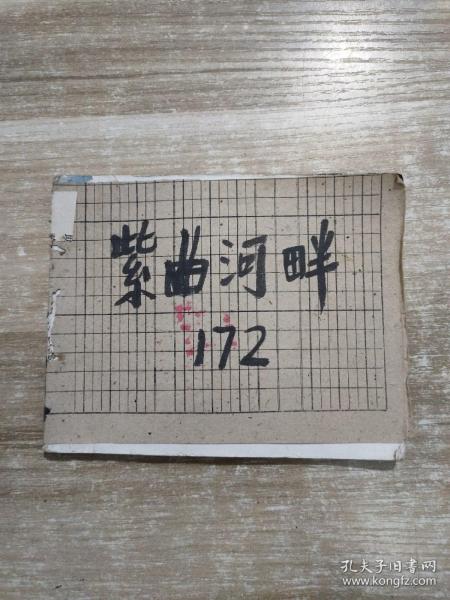 紫曲河畔
172
孔夫子旧书网
www.kongfz.com